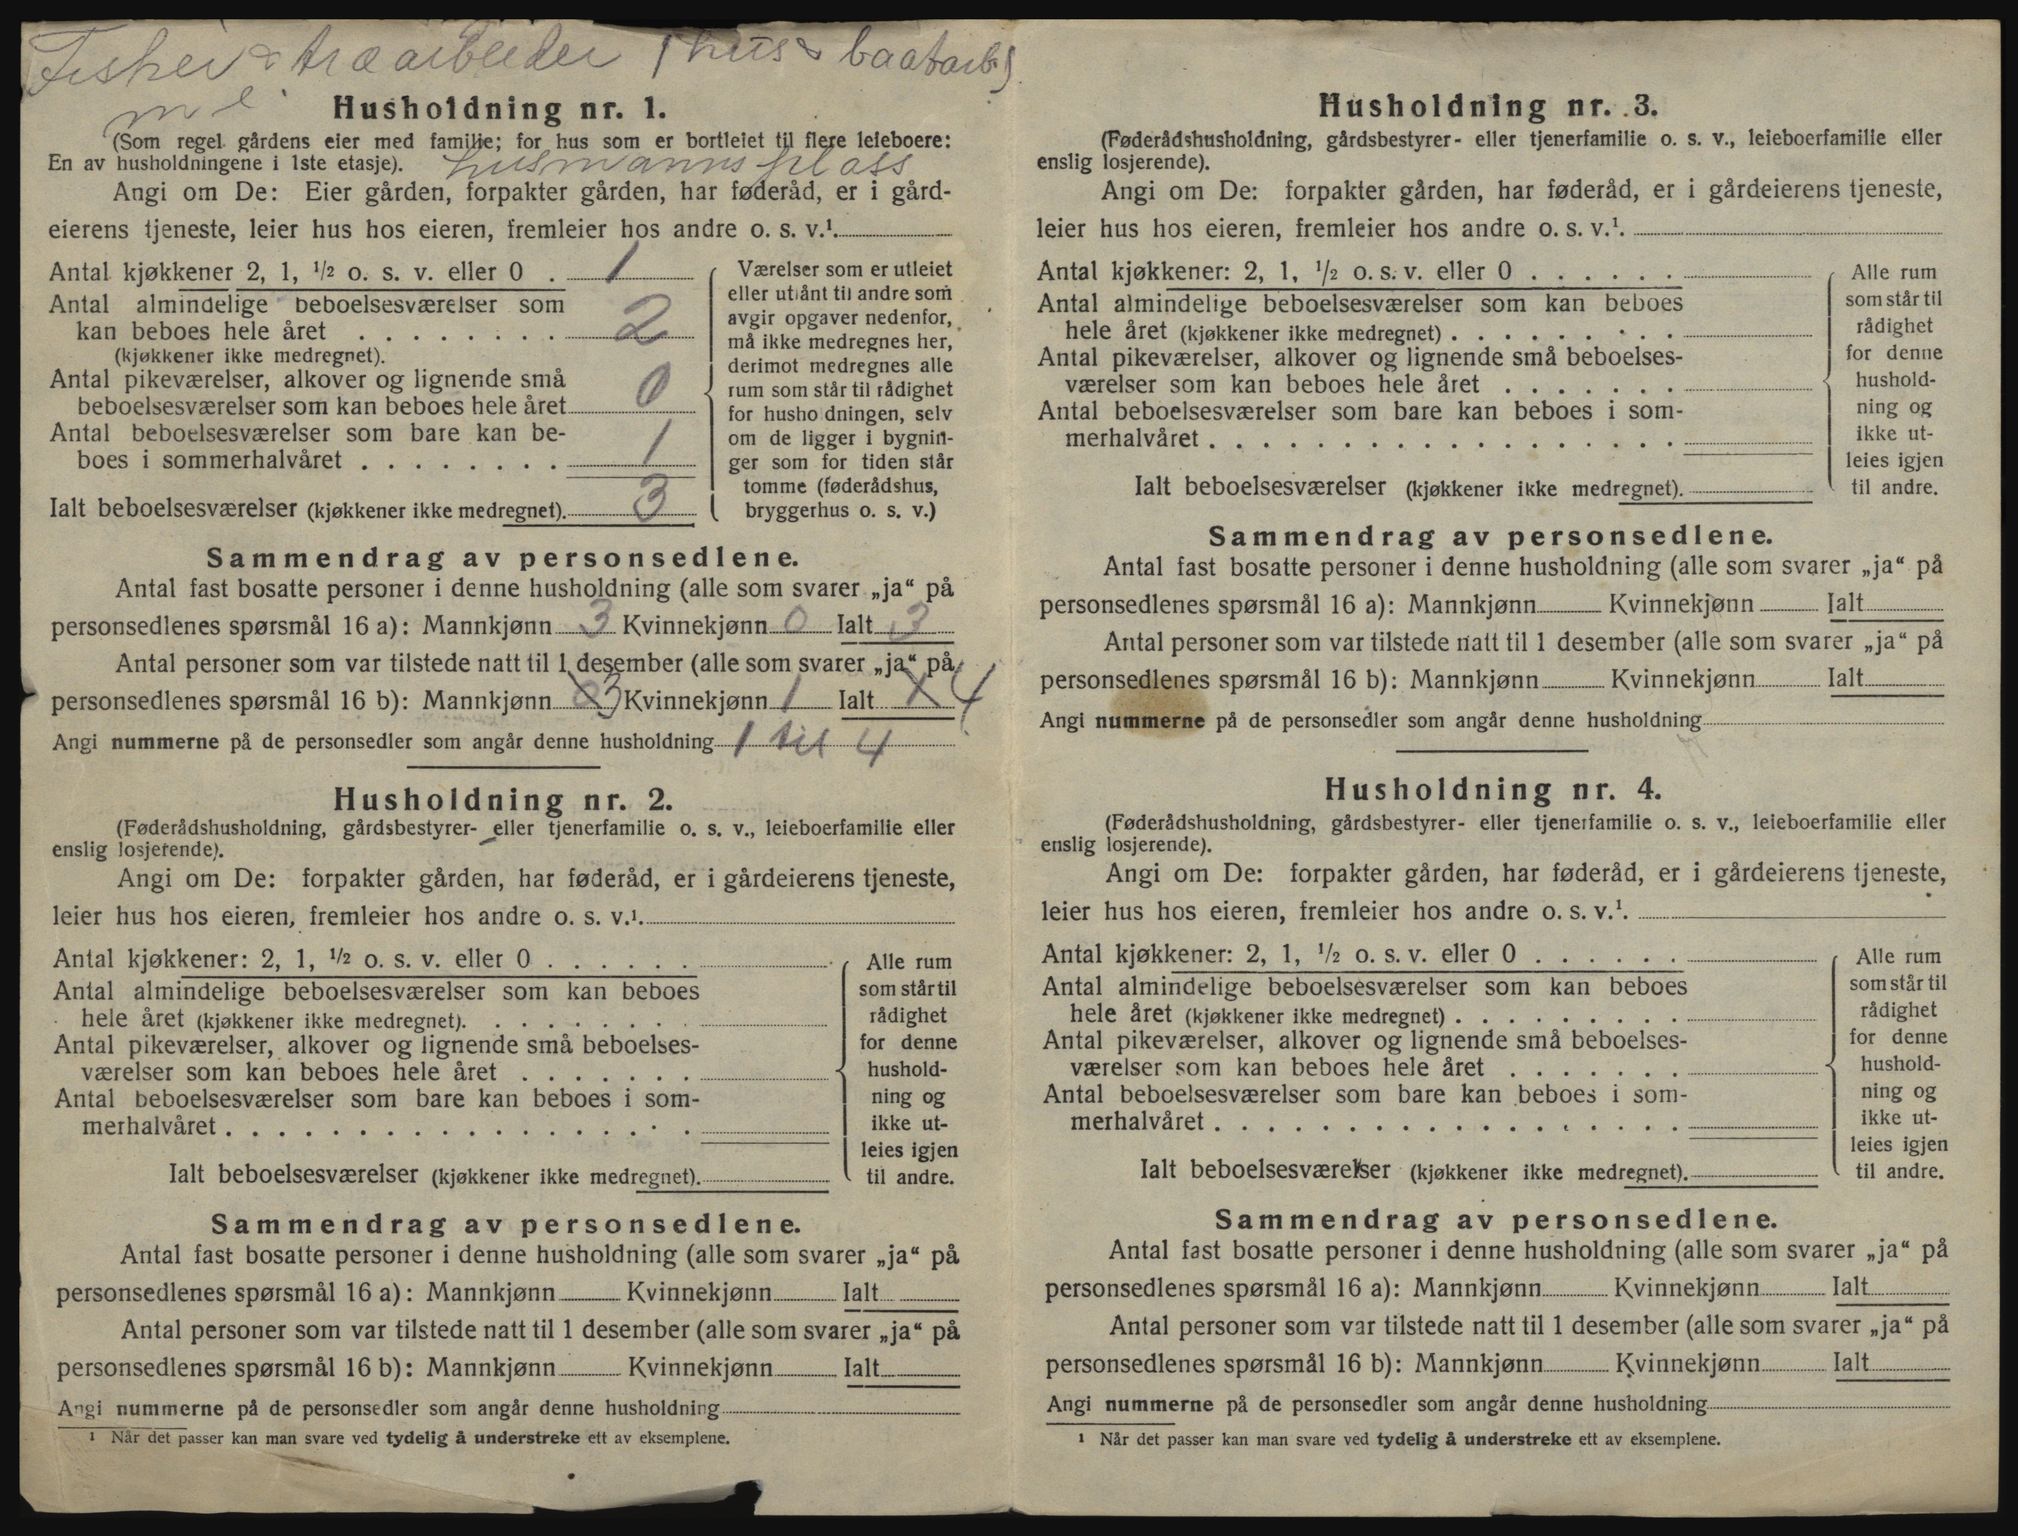 Fisker & træarbeider (hus & baatarb)
Husholdning nr. 1.
(Som regel gårdens eier med familie; for hus som er bortleiet til flere leieboere:
En av husholdningene i 1ste etasje). husmannsplass
Angi om De: Eier gården, forpakter gården, har føderåd, er i gård-
eierens tjeneste, leier hus hos eieren, fremleier hos andre o. s. v.¹
Antal kjøkkener 2, 1, 1/2 o. s. v. eller 0 . 1
Antal almindelige beboelsesværelser som
kan beboes hele året . . . . . . . . 2
(kjøkkener ikke medregnet).
Antal pikeværelser, alkover og lignende små
beboelsesværelser som kan beboes hele året 0
Antal beboelsesværelser som bare kan be-
boes i sommerhalvåret . . . . . . . . 1
Ialt beboelsesværelser (kjøkkener ikke medregnet). 3
Værelser som er utleiet
eller utlånt til andre som
avgir opgaver nedenfor,
må ikke medregnes her,
derimot medregnes alle
rum som står til rådighet
for husholdningen, selv
om de ligger i bygnin-
ger som for tiden står
tomme (føderådshus,
bryggerhus o. s. v.)
Sammendrag av personsedlene.
Antal fast bosatte personer i denne husholdning (alle som svarer „ja“ på
personsedlenes spørsmål 16 a): Mannkjønn 3 Kvinnekjønn 0 Ialt 3
Antal personer som var tilstede natt til 1 desember (alle som svarer „ja“ på
personsedlenes spørsmål 16 b): Mannkjønn 3 Kvinnekjønn 1 Ialt 4
Angi nummerne på de personsedler som angår denne husholdning 1 til 4
Husholdning nr. 2.
(Føderådshusholdning, gårdsbestyrer- eller tjenerfamilie o. s. v., leieboerfamilie eller
enslig losjerende).
Angi om De: forpakter gården, har føderåd, er i gårdeierens tjeneste,
leier hus hos eieren, fremleier hos andre o. s. v.¹.
Antal kjøkkener: 2, 1, 1/2 o. s. v. eller 0 . . . . . .
Antal almindelige beboelsesværelser som kan beboes
hele året (kjøkkener ikke medregnet). . . . . . . . .
Antal pikeværelser, alkover og lignende små beboelses-
værelser som kan beboes hele året . . . . . . .
Antal beboelsesværelser som bare kan beboes i som-
merhalvåret . . . . . . . . . . . . . . . . . .
Ialt beboelsesværelser (kjøkkener ikke medregnet).
Alle rum
som står til
rådighet
for denne
hushold-
ning og
ikke ut-
leies igjen
til andre.
Sammendrag av personsedlene.
Antal fast bosatte personer i denne husholdning (alle som svarer „ja“ på
personsedlenes spørsmål 16 a): Mannkjønn Kvinnekjønn Ialt
Antal personer som var tilstede natt til 1 desember (alle som svarer „ja“ på
personsedlenes spørsmål 16 b): Mannkjønn Kvinnekjønn Ialt
Angi nummerne på de personsedler som angår denne husholdning
¹ Når det passer kan man svare ved tydelig å understreke ett av eksemplene.
Husholdning nr. 3.
(Føderådshusholdning, gårdsbestyrer- eller tjenerfamilie o. s. v., leieboerfamilie eller
enslig losjerende).
Angi om De: forpakter gården, har føderåd, er i gårdeierens tjeneste,
leier hus hos eieren, fremleier hos andre o. s. v.¹.
Antal kjøkkener: 2, 1, 1/2 o. s. v. eller 0 . . . . . .
Antal almindelige beboelsesværelser som kan beboes
hele året (kjøkkener ikke medregnet) . . . . . . . . .
Antal pikeværelser, alkover og lignende små beboelses-
værelser som kan beboes hele året . . . . . . .
Antal beboelsesværelser som bare kan beboes i som-
merhalvåret . . . . . . . . . . . . . . . . . .
Ialt beboelsesværelser (kjøkkener ikke medregnet).
Alle rum
som står til
rådighet
for denne
hushold-
ning og
ikke ut-
leies igjen
til andre.
Sammendrag av personsedlene.
Antal fast bosatte personer i denne husholdning (alle som svarer „ja“ på
personsedlenes spørsmål 16 a): Mannkjønn Kvinnekjønn Ialt
Antal personer som var tilstede natt til 1 desember (alle som svarer „ja“ på
personsedlenes spørsmål 16 b): Mannkjønn Kvinnekjønn Ialt
Angi nummerne på de personsedler som angår denne husholdning
Husholdning nr. 4.
(Føderådshusholdning, gårdsbestyrer- eller tjenerfamilie o. s. v., leieboerfamilie eller
enslig losjerende).
Angi om De: forpakter gården, har føderåd, er i gårdeierens tjeneste,
leier hus hos eieren, fremleier hos andre o. s. v.¹.
Antal kjøkkener: 2, 1, 1/2 o. s. v. eller 0 . . . . . .
Antal almindelige beboelsesværelser som kan beboes
hele året (kjøkkener ikke medregnet) . . . . . . . . .
Antal pikeværelser, alkover og lignende små beboelses-
værelser som kan beboes hele året . . . . . . .
Antal beboelsesværelser som bare kan beboes i som-
merhalvåret . . . . . . . . . . . . . . . . . .
Ialt beboelsesværelser (kjøkkener ikke medregnet).
Alle rum
som står til
rådighet
for denne
hushold-
ning og
ikke ut-
leies igjen
til andre.
Sammendrag av personsedlene.
Antal fast bosatte personer i denne husholdning (alle som svarer „ja“ på
personsedlenes spørsmål 16 a): Mannkjønn Kvinnekjønn Ialt
Antal personer som var tilstede natt til 1 desember (alle som svarer „ja“ på
personsedlenes spørsmål 16 b): Mannkjønn Kvinnekjønn Ialt
Angi nummerne på de personsedler som angår denne husholdning
¹ Når det passer kan man svare ved tydelig å understreke ett av eksemplene.